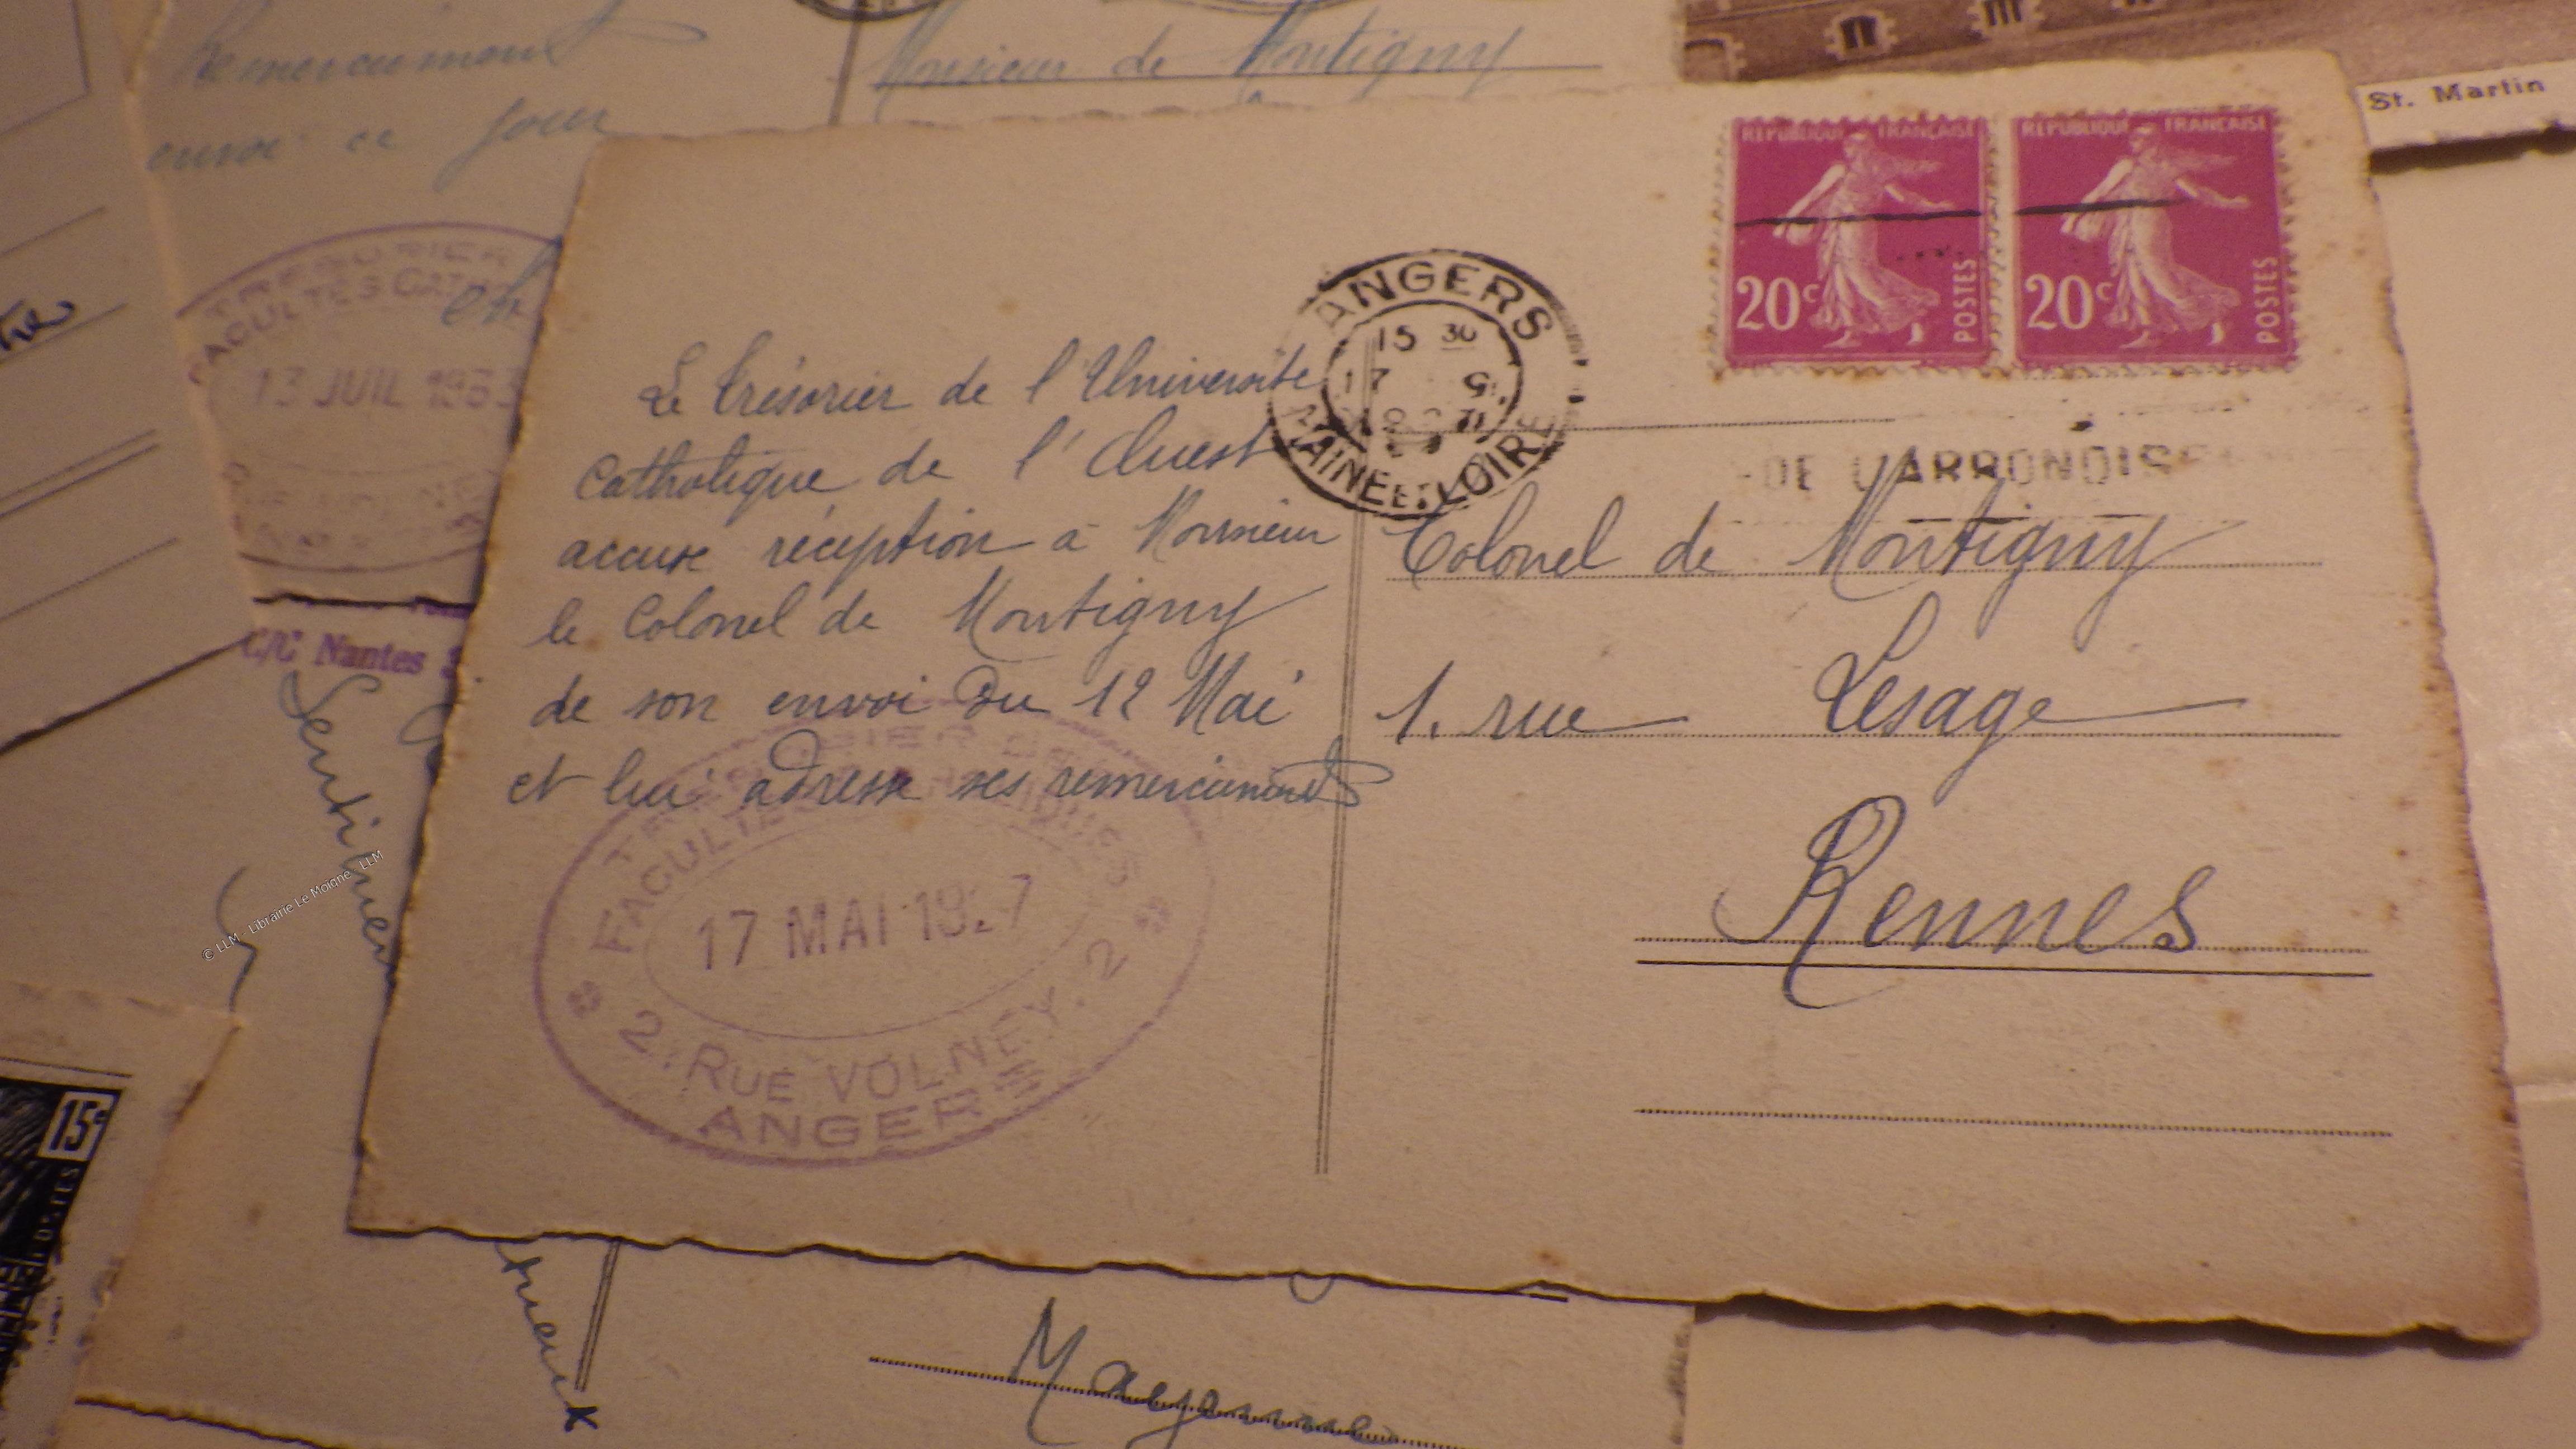 Remerciement
envoi ce jour
Monsieur de Montigny
St. Martin
TRESORIER
FACULTES CATH
13 JUIL 1953
C/C Nantes
REPUBLIQUE FRANCAISE
20c
POSTES
REPUBLIQUE FRANCAISE
20c
POSTES
ANGERS
15 30
17
MAINE ET LOIRE
Le trésorier de l'Université
Catholique de l'Ouest
accuse réception à Monsieur
le Colonel de Montigny
de son envoi du 12 Mai
et lui adresse ses remerciements
Colonel de Montigny
1. rue Lesage
Rennes
FACULTES
17 MAI
2, RUE VOLNEY. 2
ANGERS
© LLM - Librairie Le Moigne - LLM
15c
Mayenne